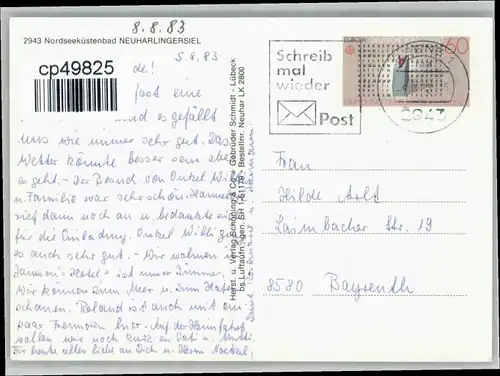 8.8.83
2943 Nordseeküstenbad NEUHARLINGERSIEL
5.8.83
cp49825
de!
fast eine
es gefällt
uns wie immer sehr gut. Das
Wetter könnte besser sein aber
es geht. - Der Besuch von Onkel Willi
u. Familie war sehr schön.
rief dann noch an u. bedankte sich
für die Einladung. Onkel Willi
es auch sehr gut. - Wir wohnen
Janssen's Hotel - ist unser Zimmer.
Wir können zum Meer u. zum Hafen
schauen. Roland ist auch mit ein
paar Freunden hier. Auf der Heimfahrt
wollen wir noch kurz zu
Für heute alles Liebe an Dich u. Herrn
Herst. u. Verlag Schöning & Co + Gebrüder Schmidt - Lübeck
bs. Luftaufn. gen. SH 1-511 - Bestellnr. Neuhar LK 2800
Schreib
mal
wieder
Post
EUROPA
60
2943
Frau
Hilde Arlt
Laimbacher Str. 19
8580 Bayreuth